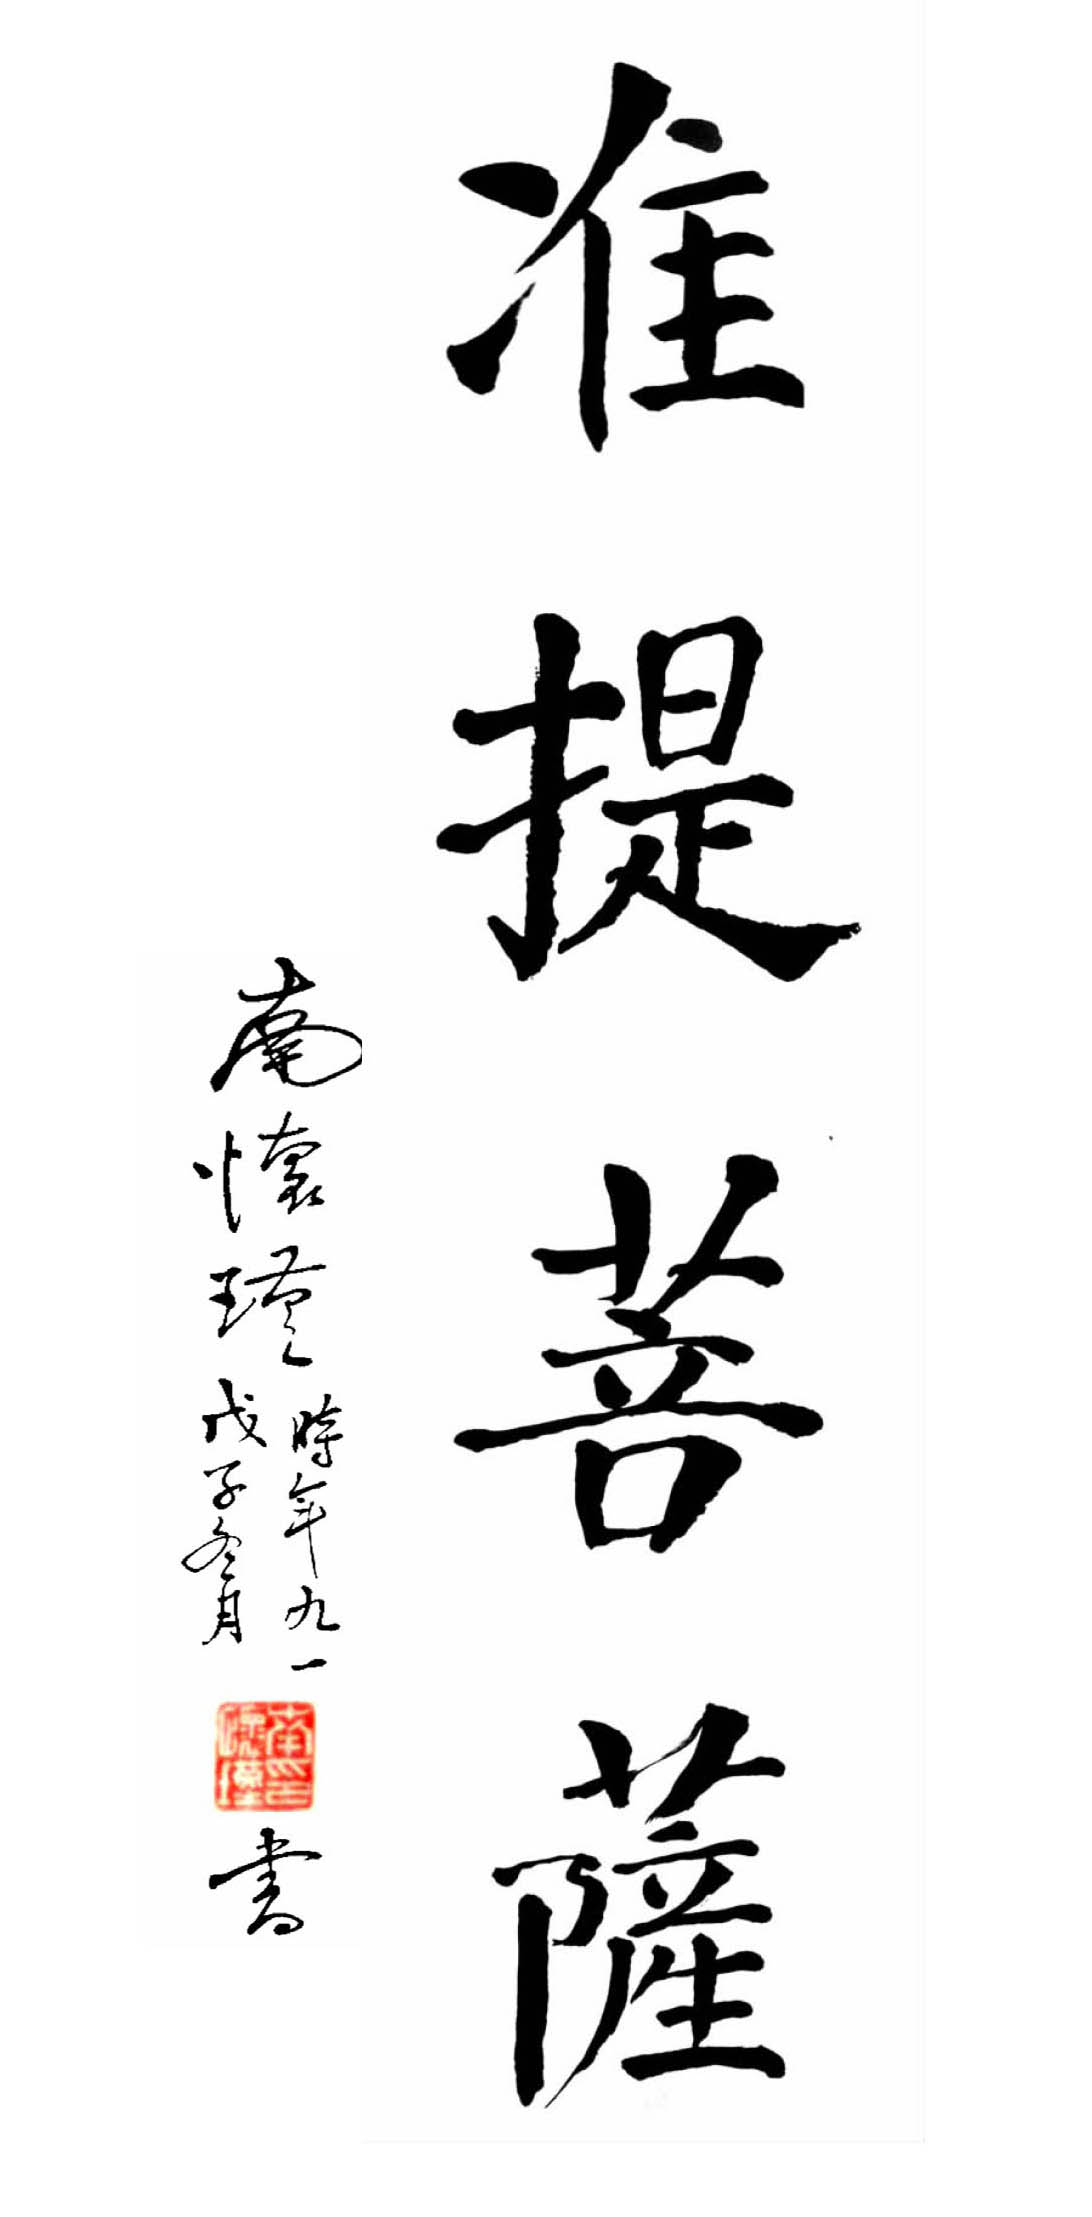 准提菩薩
南懷瑾
時年九一
戊子冬月
南懷瑾印
書